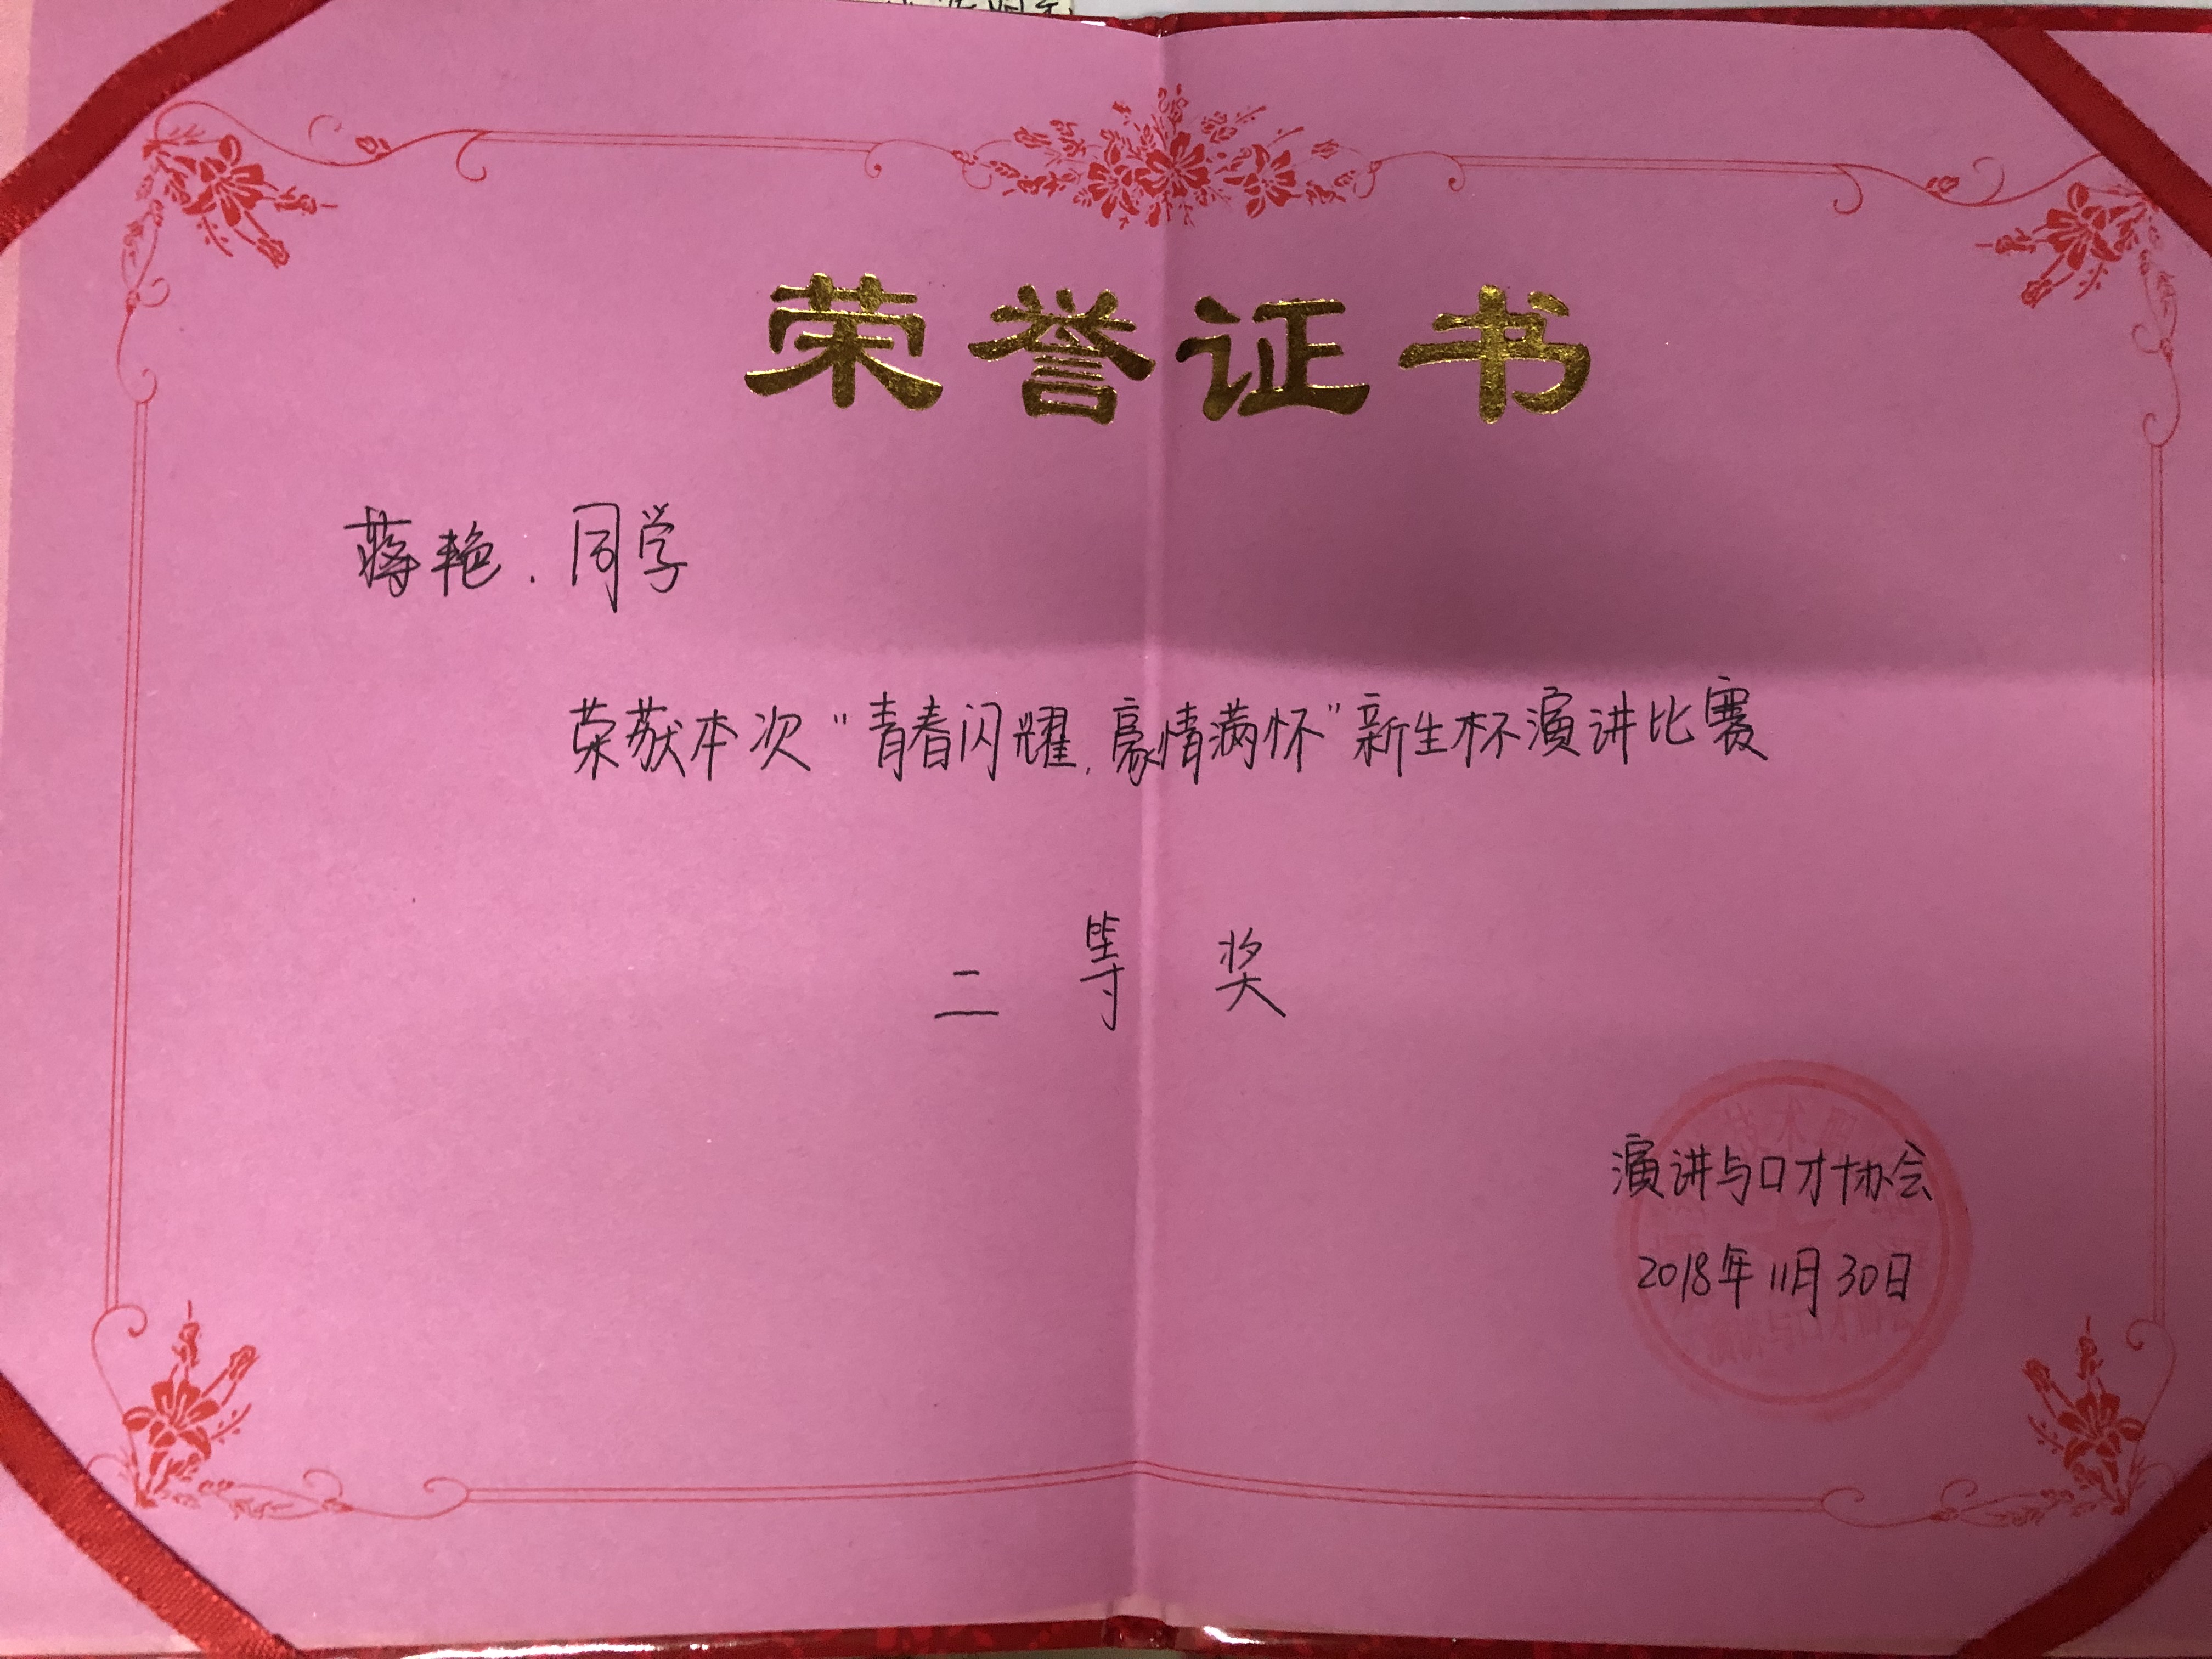 荣誉证书
蒋艳.同学
荣获本次“青春闪耀,豪情满怀”新生杯演讲比赛
二等奖
技术
演讲与口才协会
2018年11月30日
演讲与口才协会